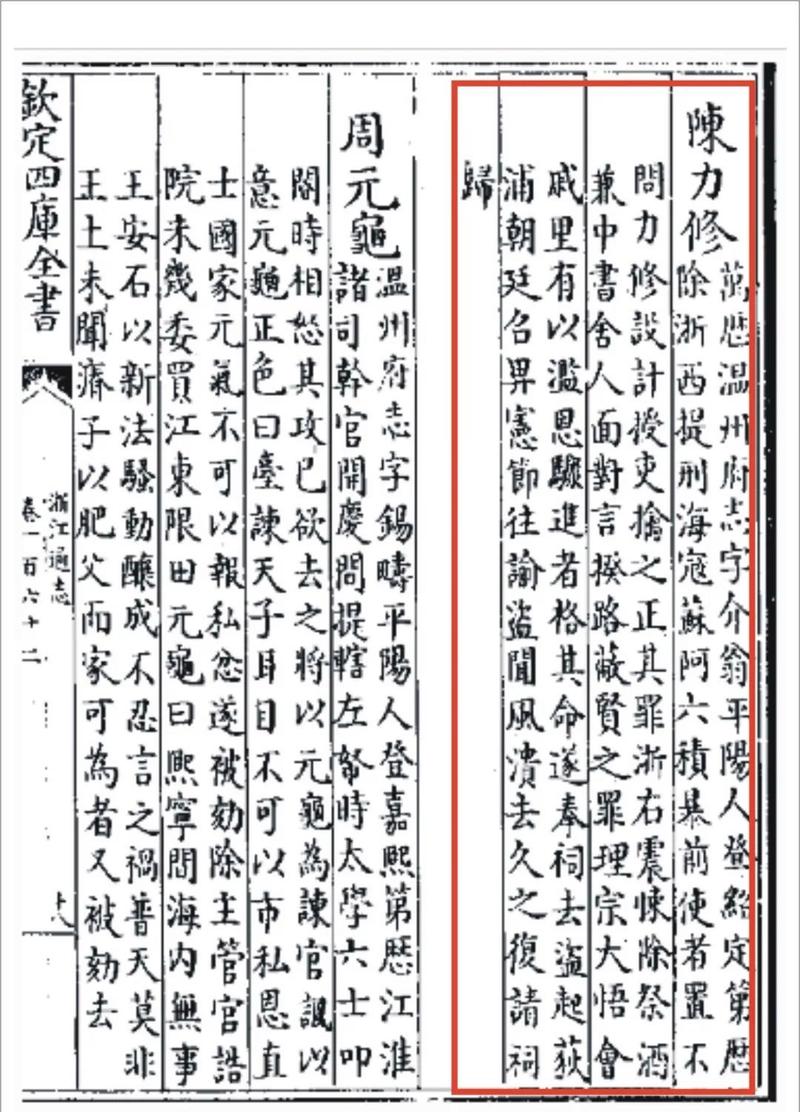 陳力修
萬歴温州府志字介翁平陽人登紹定第歴
除浙西提刑海宼蘇阿六積暴前使者置不
問力修設計授吏擒之正其罪浙右震悚除祭酒
兼中書舍人面對言揆路蔽賢之罪理宗大悟會
戚里有以濫恩驟進者格其命遂奉祠去盗起荻
浦朝廷召畀憲節往諭盗聞風潰去久之復請祠
歸
周元龜
温州府志字錫疇平陽人登嘉熙第歴江淮
諸司幹官開慶間提轄左帑時太學六士叩
閤時相怒其攻已欲去之將以元龜為諫官諷以
意元龜正色曰臺諫天子耳目不可以市私恩直
士國家元氣不可以報私忿遂被劾除主管官誥
院未幾委買江東限田元龜曰熙寧間海内無事
王安石以新法騷動釀成不忍言之禍普天莫非
王土未聞瘠子以肥父而家可為者又被劾去
欽定四庫全書
浙江通志
卷一百六十二
十八